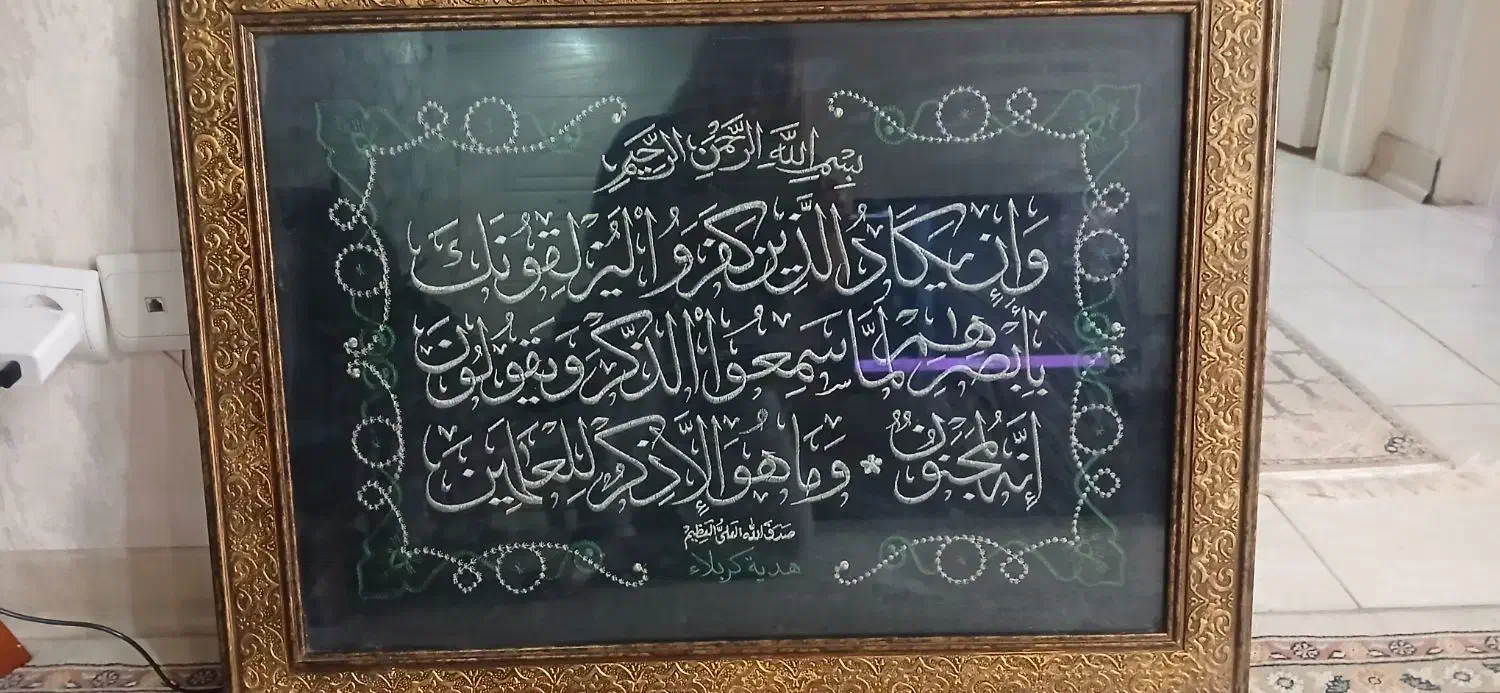 بِسْمِ اللَّهِ الرَّحْمَنِ الرَّحِيمِ
وَإِن يَكَادُ الَّذِينَ كَفَرُوا لَيُزْلِقُونَكَ
بِأَبْصَٰرِهِمْ لَمَّا سَمِعُوا الذِّكْرَ وَيَقُولُونَ
إِنَّهُ لَمَجْنُونٌ * وَمَا هُوَ إِلَّا ذِكْرٌ لِلْعَٰلَمِينَ
صَدَقَ اللهُ العَلِيُّ العَظِيمُ
هدية كربلاء